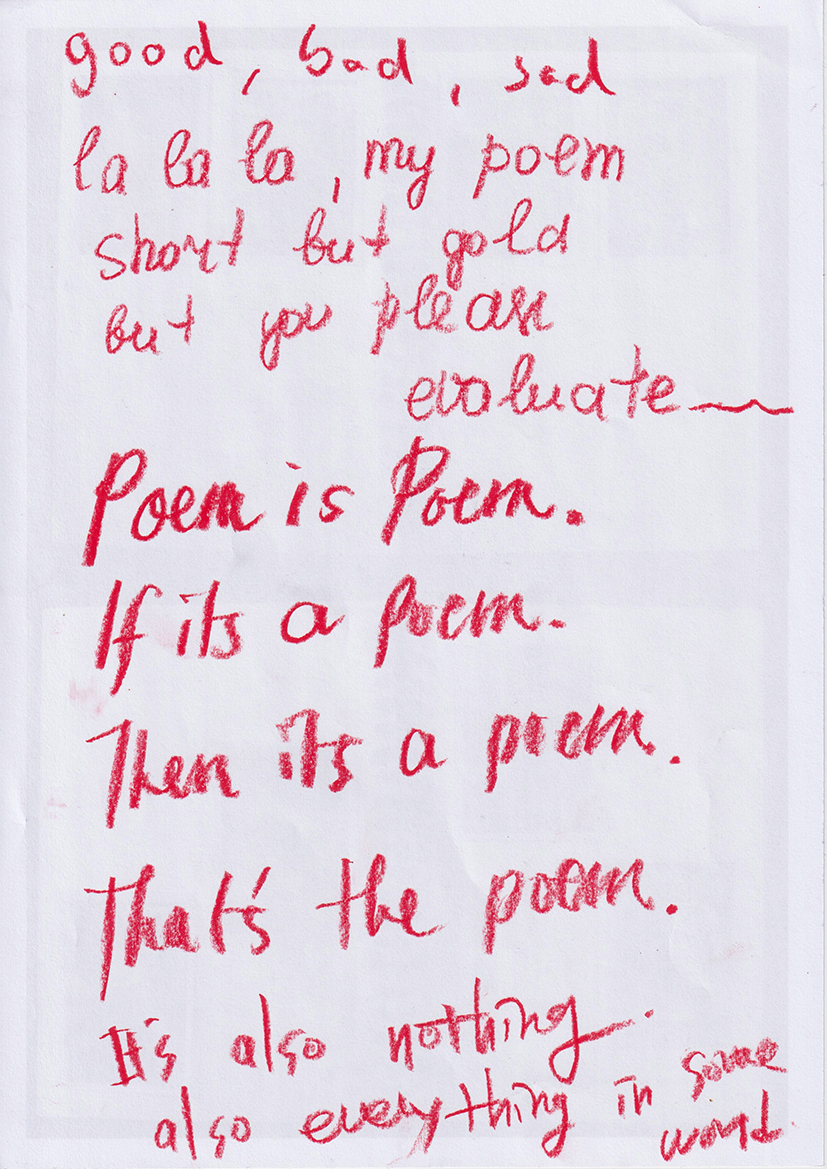 good, bad, sad
la la la, my poem
short but gold
but you please
evaluate
Poem is Poem.
If its a poem.
Then its a poem.
That's the poem.
It's also nothing.
also everything in some
word.